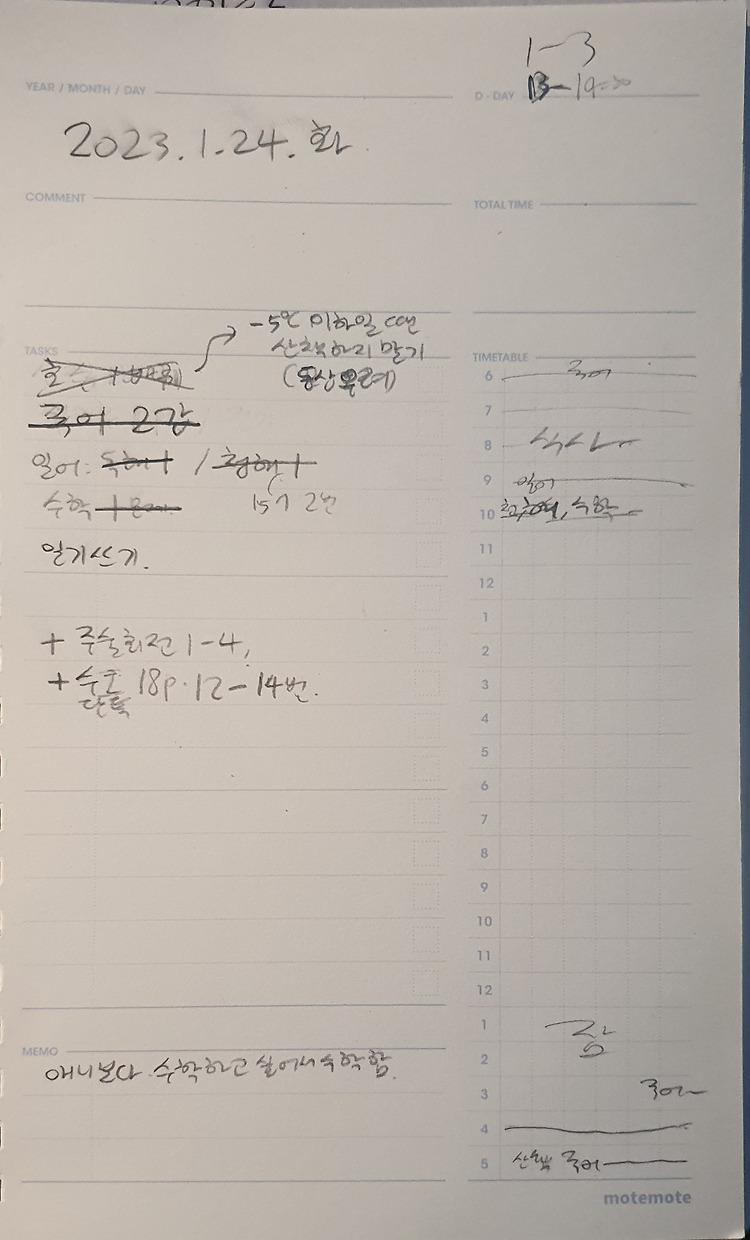 1-3
YEAR / MONTH / DAY
D-DAY 13-19:30
2023.1.24.화
COMMENT
TOTAL TIME
-5℃ 이하일 때는
산책하지 말기
(동상 우려)
TASKS
국어 2강
일어: 독해 1 / 청해 1
수학 1
15개 2번
일기쓰기.
+ 주술회전 1-4,
+ 수호 18p. 12-14번.
단톡
MEMO
애니보다 수학하고 싶어서 수학함.
TIMETABLE
6 국어
7
8 식사
9 일어
10 청해, 수학
11
12
1
2
3
4
5
6
7
8
9
10
11
12
1 잠
2
3 국어
4
5 산책 국어
motemote